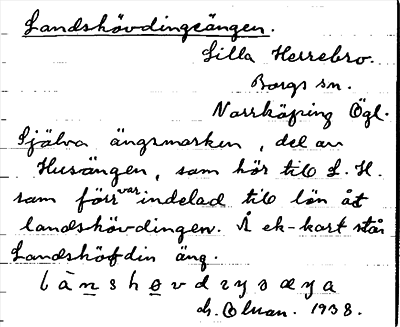 Landshövdingeängen.
Lilla Herrebro.
Borgs sn.
Norrköping Ögl.
Själva ängsmarken, del av
Husängen, som hör till L. H.
som förr var indelad till lön åt
landshövdingen. Å ek-kart står
Landshöfdin äng.
1938.